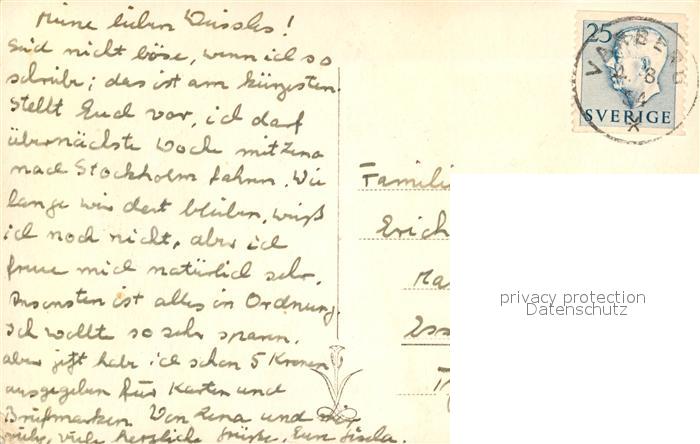 Meine lieben Deissles!
Seid nicht böse, wenn ich so
schreibe; das ist am kürzesten.
Stellt Euch vor, ich darf
übernächste Woche mit Lena
nach Stockholm fahren. Wie
lange wir dort bleiben, weiß
ich noch nicht, aber ich
freue mich natürlich sehr.
Ansonsten ist alles in Ordnung.
Ich wollte so sehr sparen,
aber jetzt habe ich schon 5 Kronen
ausgegeben für Karten und
Briefmarken. Von Lena und mir
viele herzliche Grüße, Eure Gisela.
25
VARBERG
8
54
SVERIGE
Famili
Erich
Ma
Ess
privacy protection
Datenschutz